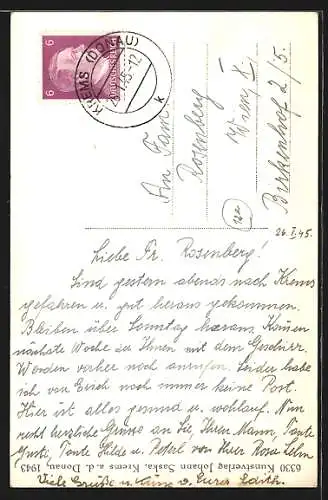 6
KREMS (DONAU)
k
An Fam.
Rosenberg
Wien X.
Birkenhof 2/5
26.I.45.
Liebe Fr. Rosenberg!
Sind gestern abends nach Krems
gefahren u. gut heraus gekommen.
Bleiben über Sonntag heraus, Können
nächste Woche zu Ihnen mit dem Geschirr.
Werden vorher noch anrufen. Leider habe
ich von Erich noch immer keine Post.
Hier ist alles gesund u. wohlauf. Nun
recht herzliche Grüsse an Sie, Ihren Mann, Tante
Gusti, Tante Hilde u. von Ihrer
Viele Grüße u. v. Eurer Edith
6330 Kunstverlag Johann Saska, Krems a. d. Donau, 1943